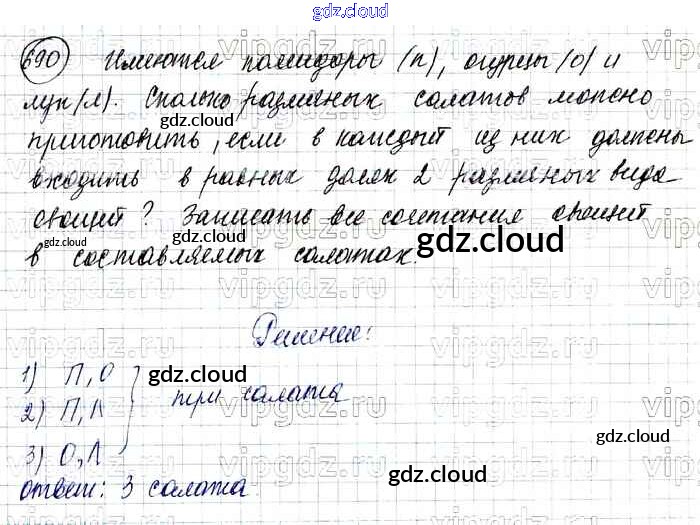 gdz.cloud
690 Имеются помидоры (п), огурцы (о) и
лук (л). Сколько различных салатов можно
приготовить, если в каждый из них должны
входить в равных долях 2 различных вида
овощей? Записать все сочетания овощей
в составляемых салатах.
Решение:
1) П, О
2) П, Л
3) О, Л
три салата
ответ: 3 салата
gdz.cloud
gdz.cloud
gdz.cloud
gdz.cloud
gdz.cloud
gdz.cloud
gdz.cloud
gdz.cloud
gdz.cloud
vipgdz.ru
vipgdz.ru
vipgdz.ru